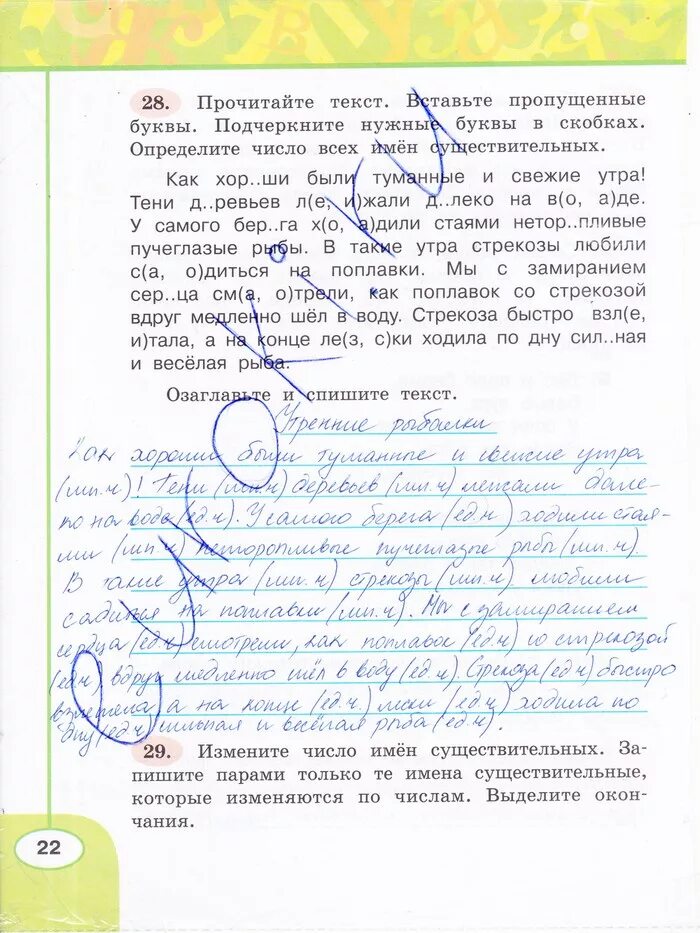 28. Прочитайте текст. Вставьте пропущенные
буквы. Подчеркните нужные буквы в скобках.
Определите число всех имён существительных.
Как хор..ши были туманные и свежие утра!
Тени д..ревьев л(е, и)жали д..леко на в(о, а)де.
У самого бер..га х(о, а)дили стаями нетор..пливые
пучеглазые рыбы. В такие утра стрекозы любили
с(а, о)диться на поплавки. Мы с замиранием
сер..ца см(а, о)трели, как поплавок со стрекозой
вдруг медленно шёл в воду. Стрекоза быстро взл(е,
и)тала, а на конце ле(з, с)ки ходила по дну сил..ная
и весёлая рыба.
Озаглавьте и спишите текст.
Утренние рыбалки
Как хороши были туманные и свежие утра
(мн.ч)! Тени (мн.ч) деревьев (мн.ч) лежали дале-
ко на воде (ед.ч). У самого берега (ед.ч) ходили стая-
ми (мн.ч) неторопливые пучеглазые рыбы (мн.ч).
В такие утра (мн.ч) стрекозы (мн.ч) любили
садиться на поплавки (мн.ч). Мы с замиранием
сердца (ед.ч) смотрели, как поплавок (ед.ч) со стрекозой
(ед.ч) вдруг медленно шёл в воду (ед.ч). Стрекоза (ед.ч) быстро
взлетела, а на конце (ед.ч.) лески (ед.ч) ходила по
дну (ед.ч) сильная и весёлая рыба (ед.ч).
29. Измените число имён существительных. За-
пишите парами только те имена существительные,
которые изменяются по числам. Выделите окон-
чания.
22